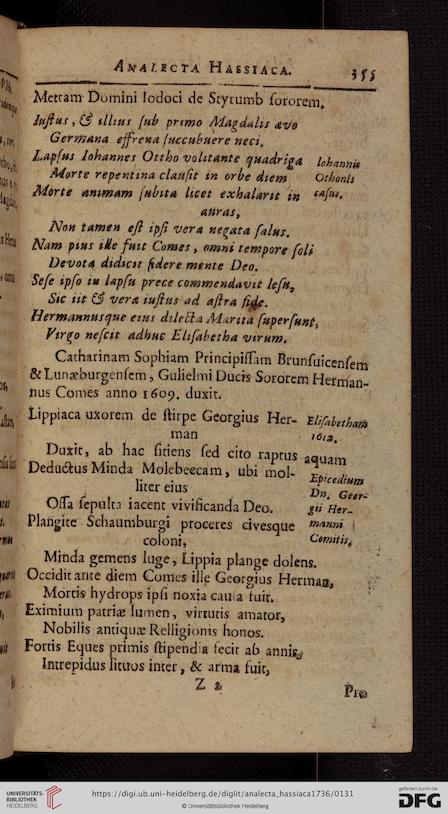 ANALECTA HASSIACA. 355
Mettam Domini Iodoci de Styrumb sororem,
Iustus, & illius sub primo Magdalis ævo
Germana effrena succubuere neci,
Lapsus Iohannes Ottho volitante quadriga
Iohannis
Morte repentina clausit in orbe diem
Othonis
Morte animam subita licet exhalarit in
casus.
auras,
Non tamen est ipsi vera negata salus.
Nam pius ille fuit Comes, omni tempore soli
Devota didicit fidere mente Deo.
Sese ipso in lapsu prece commendavit Iesu,
Sic iit & vera iustus ad astra fide.
Hermannusque eius dilecta Marita supersunt,
Virgo nescit adhuc Elisabetha virum.
Catharinam Sophiam Principissam Brunsuicensem
& Lunæburgensem, Gulielmi Ducis Sororem Herman-
nus Comes anno 1609. duxit.
Lippiaca uxorem de stirpe Georgius Her-
Elisabetham
man
1612.
Duxit, ab hac sitiens sed cito raptus aquam
Deductus Minda Molebeecam, ubi mol-
Epicedium
liter eius
Dn. Geor-
Ossa sepulta iacent vivificanda Deo.
gii Her-
Plangite Schaumburgi proceres civesque
manni
coloni,
Comitis.
Minda gemens luge, Lippia plange dolens.
Occidit ante diem Comes ille Georgius Herman,
Mortis hydrops ipsi noxia causa fuit.
Eximium patriæ lumen, virtutis amator,
Nobilis antiquæ Relligionis honos.
Fortis Eques primis stipendia fecit ab annis,
Intrepidus lituos inter, & arma fuit,
Z 2
Pro
UNIVERSITÄTS-
BIBLIOTHEK
HEIDELBERG
https://digi.ub.uni-heidelberg.de/diglit/analecta_hassiaca1736/0131
© Universitätsbibliothek Heidelberg
gefördert durch die
DFG